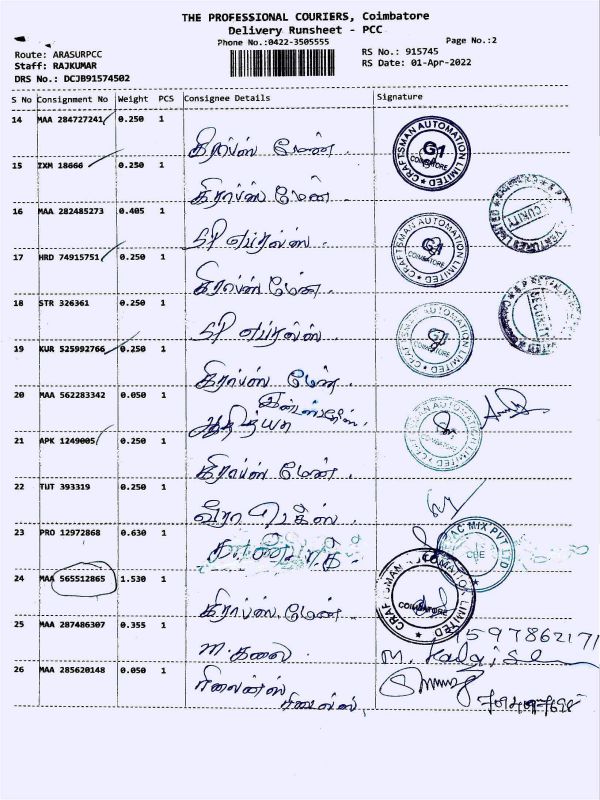 THE PROFESSIONAL COURIERS, Coimbatore
Delivery Runsheet - PCC
Phone No.:0422-3505555
Page No.:2
Route: ARASURPCC
RS No.: 915745
Staff: RAJKUMAR
RS Date: 01-Apr-2022
DRS No.: DCJB91574502
S No Consignment No Weight PCS Consignee Details Signature
14 MAA 284727241 0.250 1
கிராப்ஸ் மேன்.
CRAFTSMAN AUTOMATION LIMITED G1 COIMBATORE
15 IXM 18666 0.250 1
கிராப்ஸ் மேன்.
16 MAA 282485273 0.405 1
SECURITY
17 HRD 74915751 0.250 1
கிராப்ஸ் மேன்.
CRAFTSMAN AUTOMATION LIMITED G1 COIMBATORE
18 STR 326361 0.250 1
SECURITY
19 KUR 525992766 0.250 1
கிராப்ஸ் மேன்.
CRAFTSMAN AUTOMATION LIMITED COIMBATORE
20 MAA 562283342 0.050 1
ஆதித்யா
CRAFTSMAN AUTOMATION LIMITED COIMBATORE
21 APK 1249005 0.250 1
கிராப்ஸ் மேன்.
22 TUT 393319 0.250 1
23 PRO 12972868 0.630 1
MIX PVT LTD CBE
24 MAA 565512865 1.530 1
கிராப்ஸ் மேன்.
CRAFTSMAN AUTOMATION LIMITED COIMBATORE
25 MAA 287486307 0.355 1
m. கலை
M. Kalai
26 MAA 285620148 0.050 1
ரிலைன்ஸ்